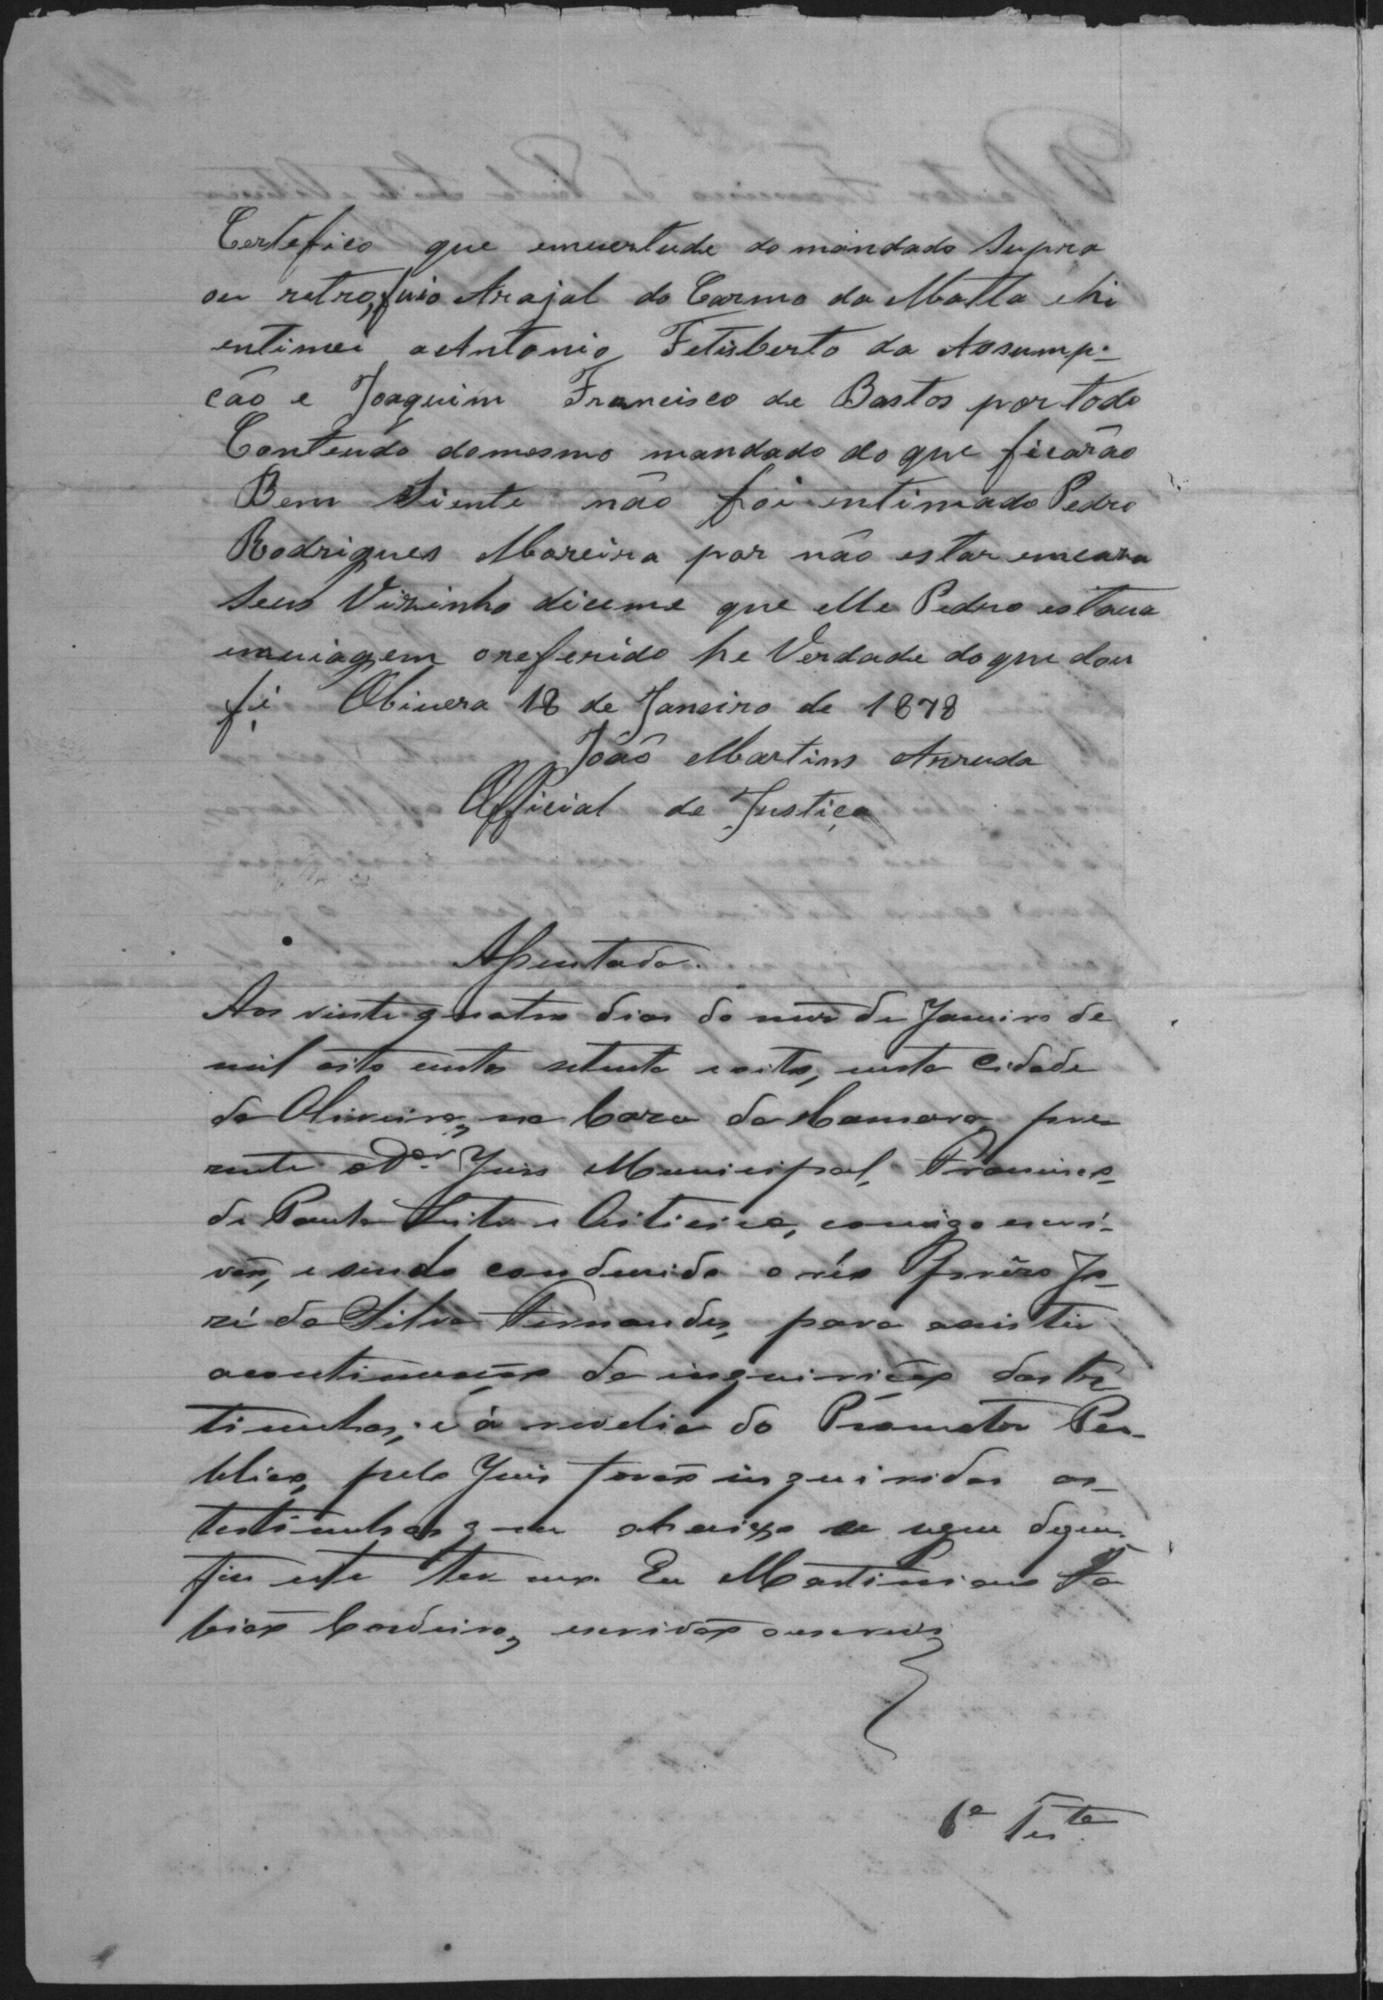 Certefico que emvertude do mandado Supra
ou retro, fui o Arajal do Carmo da Matta e hi
entimei a Antonio Felisberto da Assump-
ção e Joaquim Francisco de Bastos por todo
Conteudo do mesmo mandado do que ficarão
Bem Siente não foi entimado Pedro
Rodrigues Moreira por não estar em caza
Seus Vizinho diceme que elle Pedro estava
em viagem o referido he Verdade do que dou
fé Olivera 18 de Janeiro de 1878
João Martins Arruda
Official de Justiça
Assentada.
Aos vinte quatro dias do mez de Janeiro de
mil oito centos setenta e oito, nesta Cidade
da Oliveira, na Caza da Camara, pre
zente o Dor. Juis Municipal, Francisco
de Paula Leite e Oiticica, comigo escri-
vão, e sendo conduzido o réo Jo-
zé da Silva Fernandes, para assistir
a continuação da inquirição das tes
timunhas, e á revelia do Promotor Pu-
blico, pelo Juis forão inquiridas as
testimunhas que abaixo se segue do que
fiz este termo. Eu Martiniano Fa
bião Cordeiro, escrivão o escrevi
6ª Testa